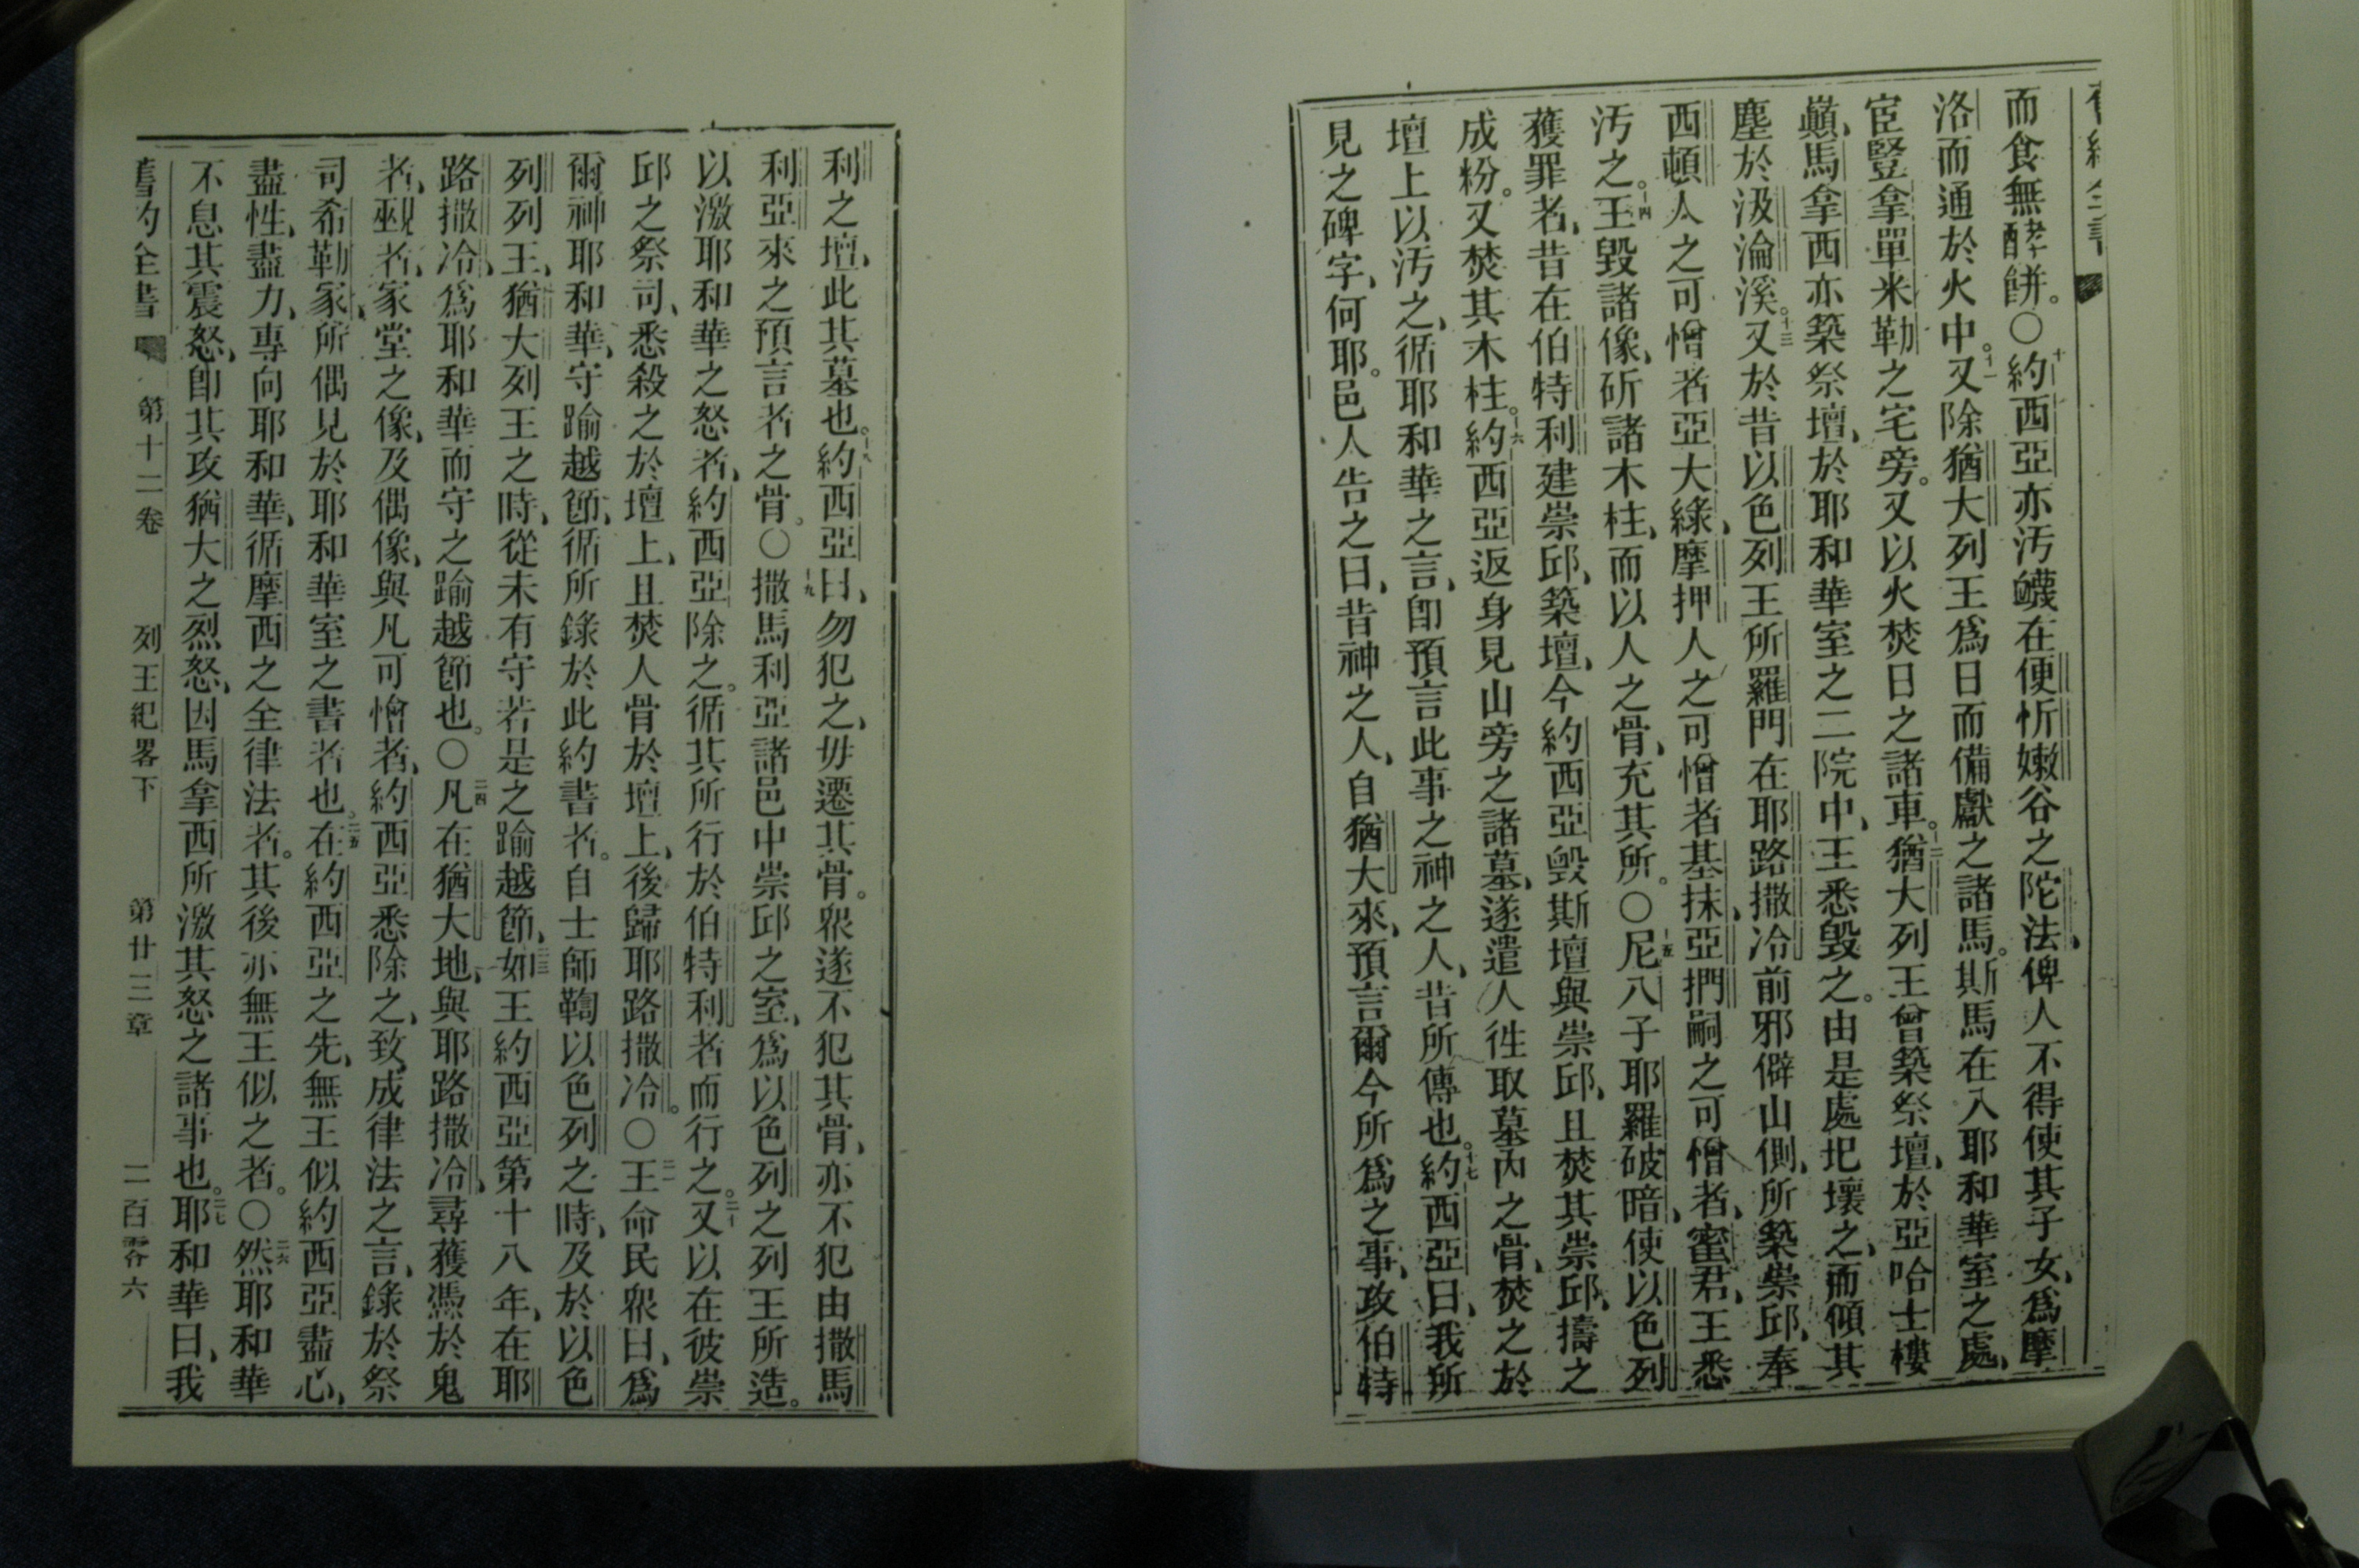 舊約全書
而食無酵餅。〇十約西亞亦汚衊在便忻嫩谷之陀法、俾人不得使其子女、爲摩
洛而通於火中。十一又除猶大列王爲日而備獻之諸馬。斯馬在入耶和華室之處、
宦豎拿單米勒之宅旁。又以火焚日之諸車。十二猶大列王曾築祭壇、於亞哈士樓
巔、馬拿西亦築祭壇、於耶和華室之二院中、王悉毀之。由是處圯壞之、而傾其
塵於汲淪溪。十三又於昔以色列王所羅門在耶路撒冷前邪僻山側、所築崇邱、奉
西頓人之可憎者亞大綠、摩押人之可憎者基抹、亞捫嗣之可憎者、蜜君、王悉
汚之。十四王毀諸像、斫諸木柱、而以人之骨、充其所。〇十五尼八子耶羅破暗、使以色列
獲罪者、昔在伯特利建崇邱、築壇、今約西亞毀斯壇與崇邱、且焚其崇邱、擣之
成粉。又焚其木柱。十六約西亞返身見山旁之諸墓、遂遣人徃取墓內之骨、焚之於
壇上以汚之、循耶和華之言、卽預言此事之神之人、昔所傳也。十七約西亞曰、我所
見之碑字、何耶。邑人告之曰、昔神之人、自猶大來、預言爾今所爲之事、攻伯特
利之壇、此其墓也。十八約西亞曰、勿犯之、毋遷其骨。衆遂不犯其骨、亦不犯由撒馬
利亞來之預言者之骨。〇十九撒馬利亞諸邑中崇邱之室、爲以色列之列王所造。
以激耶和華之怒者、約西亞除之。循其所行於伯特利者而行之。二十又以在彼崇
邱之祭司、悉殺之於壇上、且焚人骨於壇上、後歸耶路撒冷。〇二一王命民衆曰、爲
爾神耶和華、守踰越節、循所錄於此約書者。自士師鞫以色列之時、及於以色
列列王、猶大列王之時、從未有守若是之踰越節、二三如王約西亞第十八年、在耶
路撒冷、爲耶和華而守之踰越節也。〇二四凡在猶大地、與耶路撒冷、尋獲憑於鬼
者、覡者、家堂之像、及偶像、與凡可憎者、約西亞悉除之、致成律法之言、錄於祭
司希勒家、所偶見於耶和華室之書者也。二五在約西亞之先、無王似約西亞盡心、
盡性、盡力、專向耶和華、循摩西之全律法者。其後亦無王似之者。〇二六然耶和華
不息其震怒、卽其攻猶大之烈怒、因馬拿西所激其怒之諸事也。二七耶和華曰、我
舊約全書 第十二卷 列王紀畧下 第廿三章 二百零六